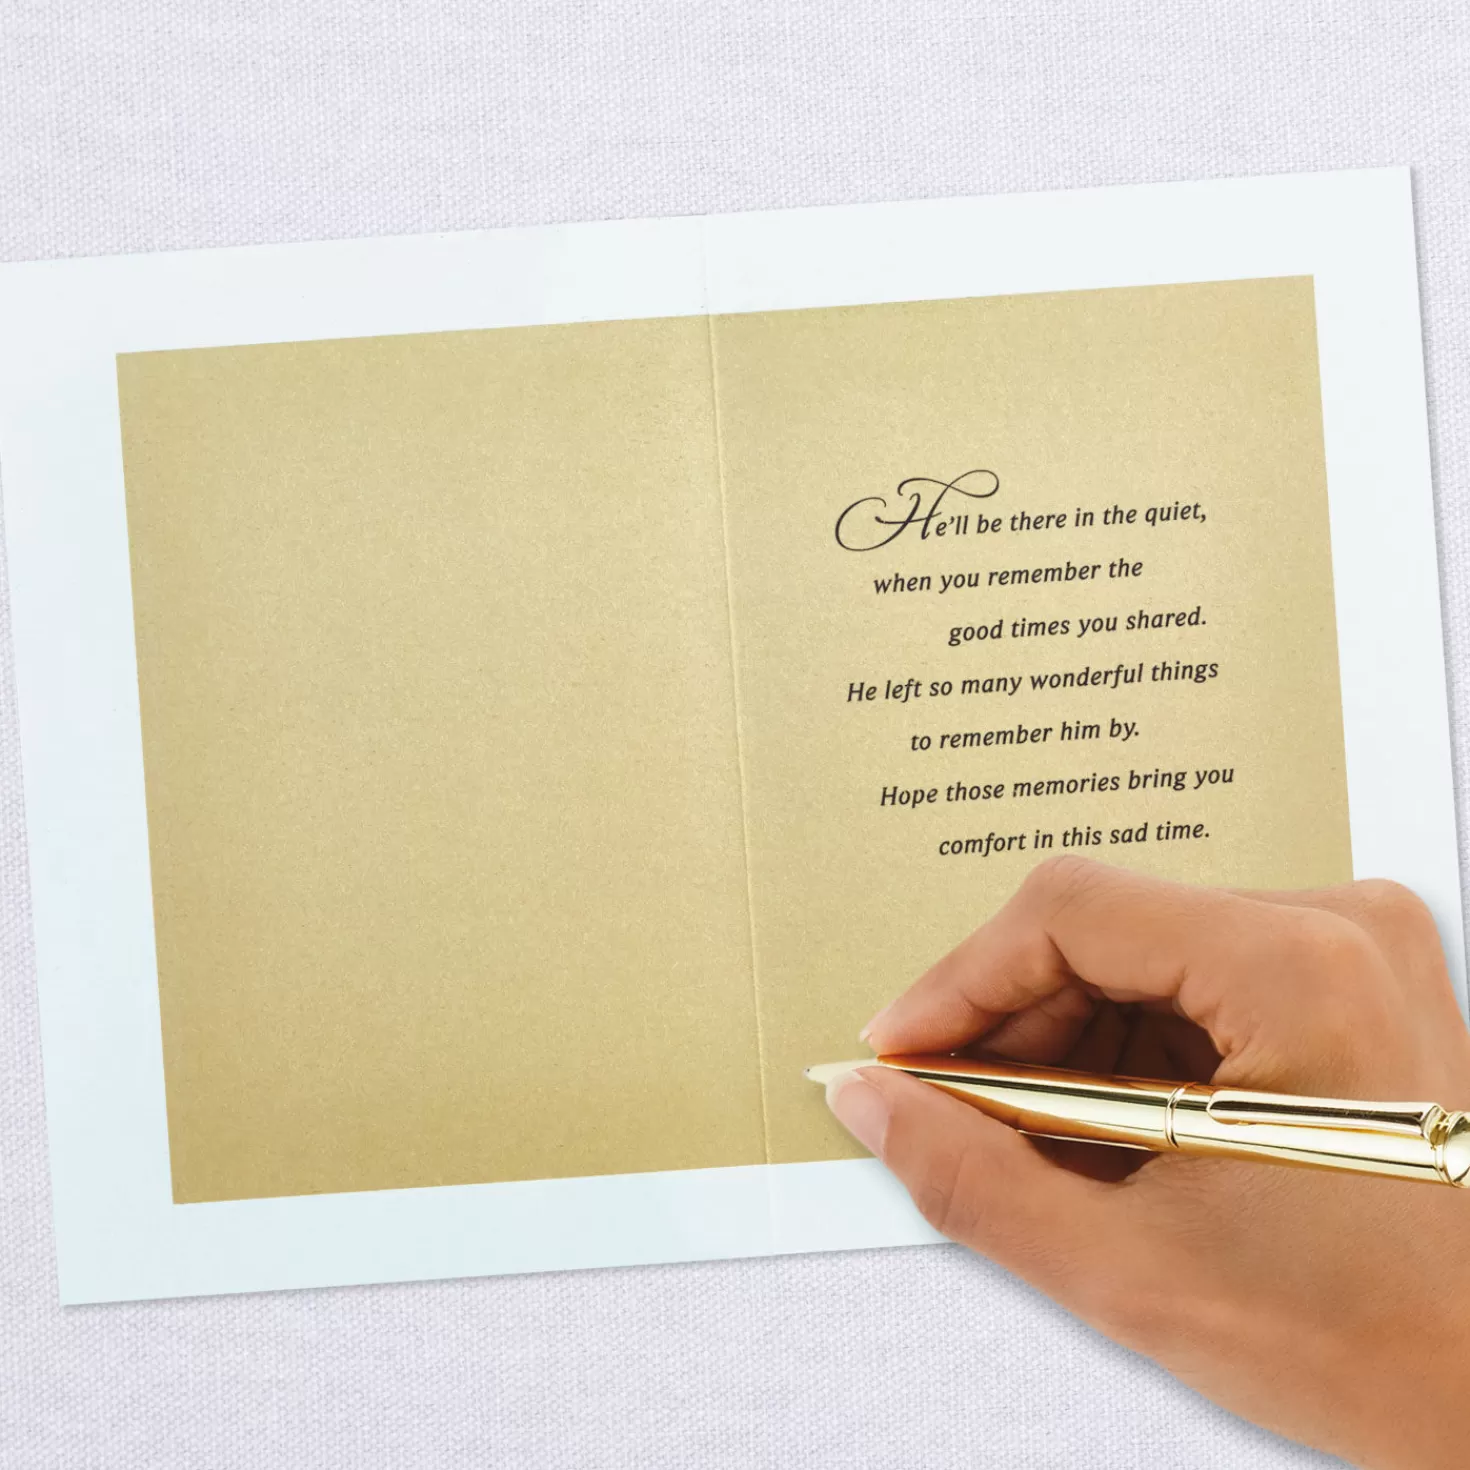 He'll be there in the quiet,
when you remember the
good times you shared.
He left so many wonderful things
to remember him by.
Hope those memories bring you
comfort in this sad time.